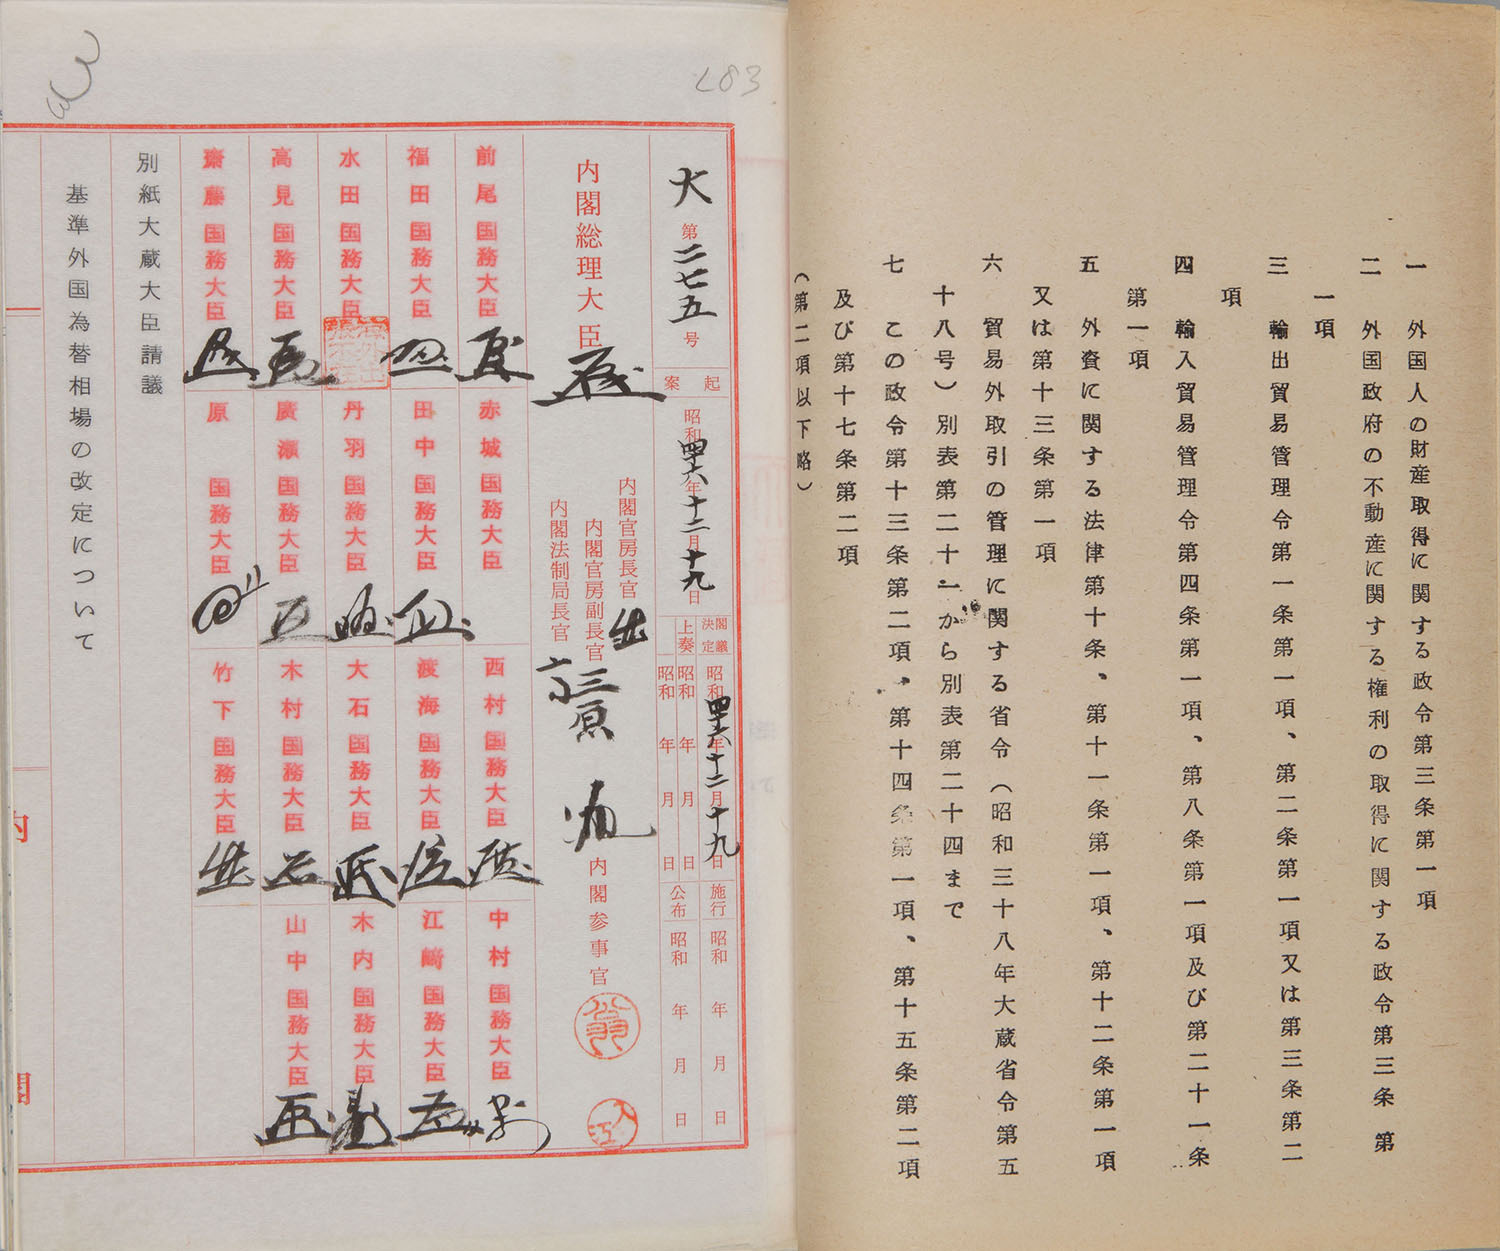 一　外国人の財産取得に関する政令第三条第一項
二　外国政府の不動産に関する権利の取得に関する政令第三条第
一項
三　輸出貿易管理令第一条第一項、第二条第一項又は第三条第二
項
四　輸入貿易管理令第四条第一項、第八条第一項及び第二十一条
第一項
五　外資に関する法律第十条、第十一条第一項、第十二条第一項
又は第十三条第一項
六　貿易外取引の管理に関する省令（昭和三十八年大蔵省令第五
十八号）別表第二十一から別表第二十四まで
七　この政令第十三条第二項、第十四条第一項、第十五条第二項
及び第十七条第二項
（第二項以下略）
283
大第二七五号
起案
昭和四十六年十二月十九日
閣議決定
昭和四十六年十二月十九日
上奏
昭和　年　月　日
昭和　年　月　日
施行
昭和　年　月　日
公布
昭和　年　月　日
内閣総理大臣
内閣官房長官
内閣官房副長官
三原
内閣法制局長官
内閣参事官
入江
前尾国務大臣
赤城国務大臣
西村国務大臣
中村国務大臣
福田国務大臣
田中国務大臣
渡海国務大臣
江﨑国務大臣
水田国務大臣
丹羽国務大臣
大石国務大臣
木内国務大臣
高見国務大臣
廣瀬国務大臣
木村国務大臣
山中国務大臣
齋藤国務大臣
原国務大臣
竹下国務大臣
別紙大蔵大臣請議
基準外国為替相場の改定について
内閣